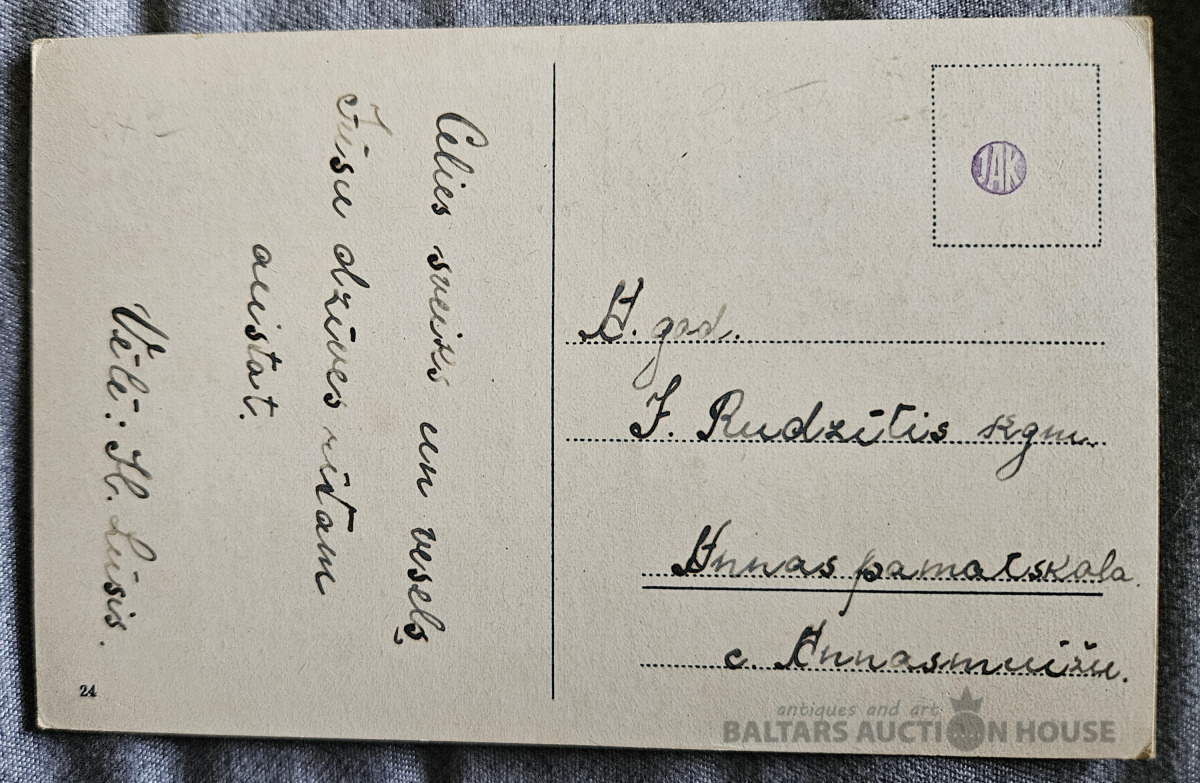 Celies sveiks un vesels,
Jūsu dzīves rītam
austat.
Vēlē: H. Lūsis.
24
JAK
A. god.
J. Rudzītis kgm.
Annas pamatskola.
c Annasmuižu.
antiques and art
BALTARS AUCTION HOUSE